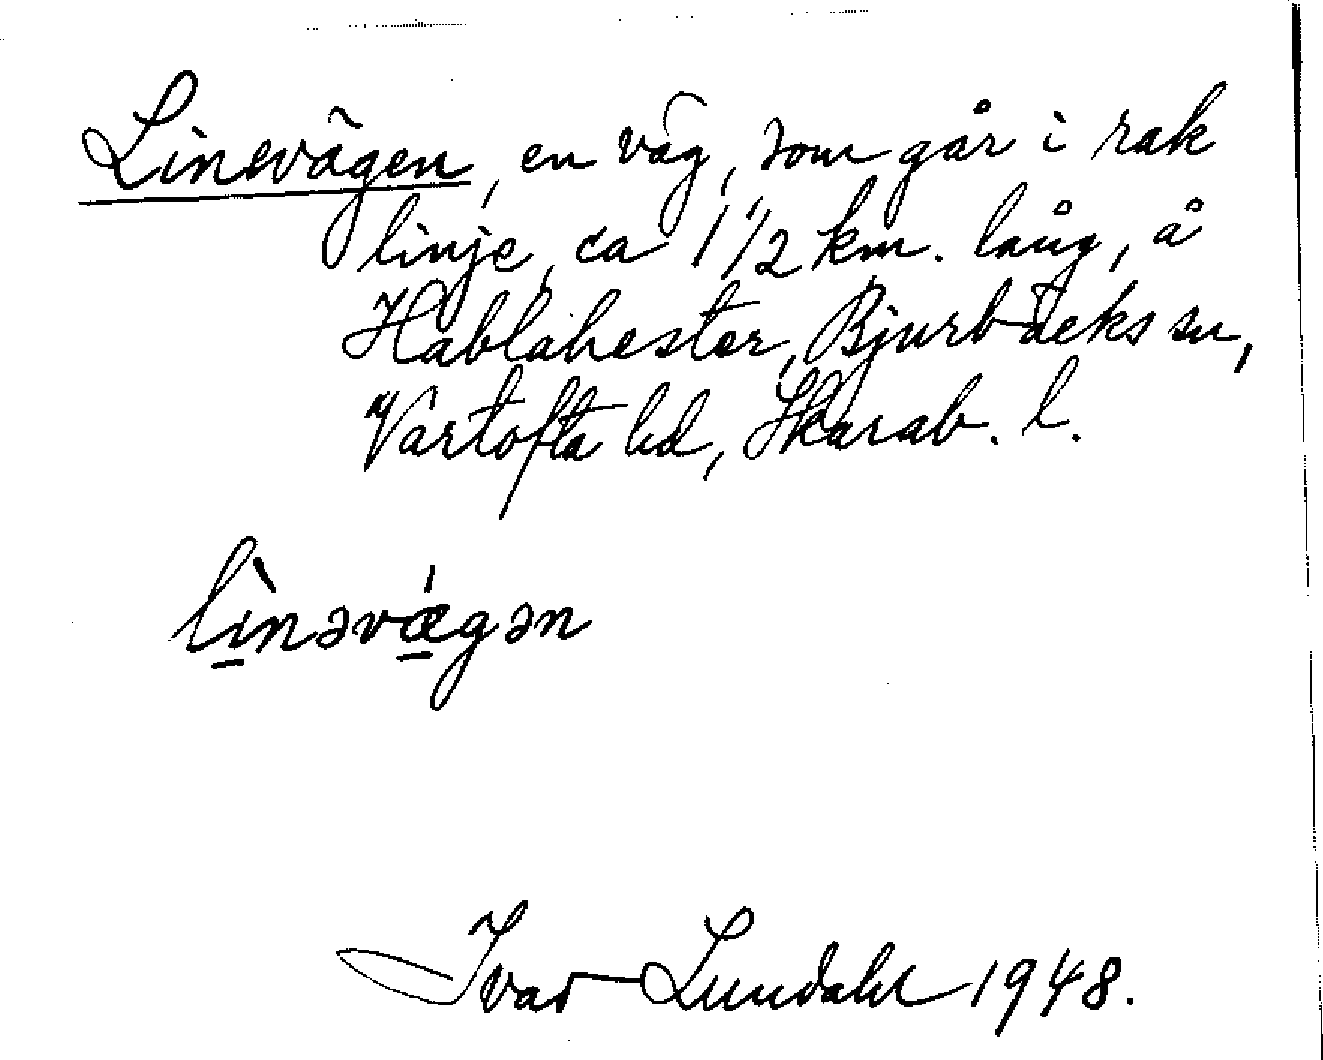 Linevägen, en väg, som går i rak
linje, ca 1 1/2 km. lång, å
Hablahester, Bjurbäcks sn,
Vartofta hd, Skarab. l.
lìnəvǽgən
Ivar Lundahl 1948.